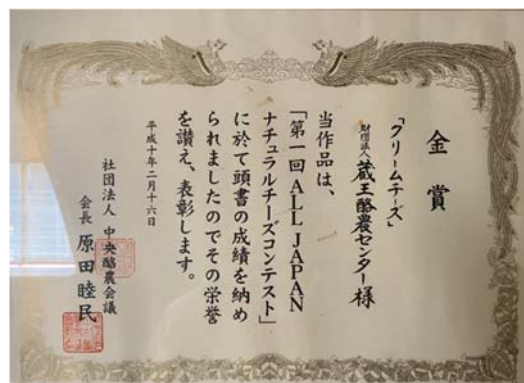 金賞
「クリームチーズ」
財団法人 蔵王酪農センター様
当作品は、
「第一回 ALL JAPAN
ナチュラルチーズコンテスト」
に於て頭書の成績を納め
られましたのでその栄誉
を讃え、表彰します。
平成十年二月十六日
社団法人 中央酪農会議
会長 原田睦民